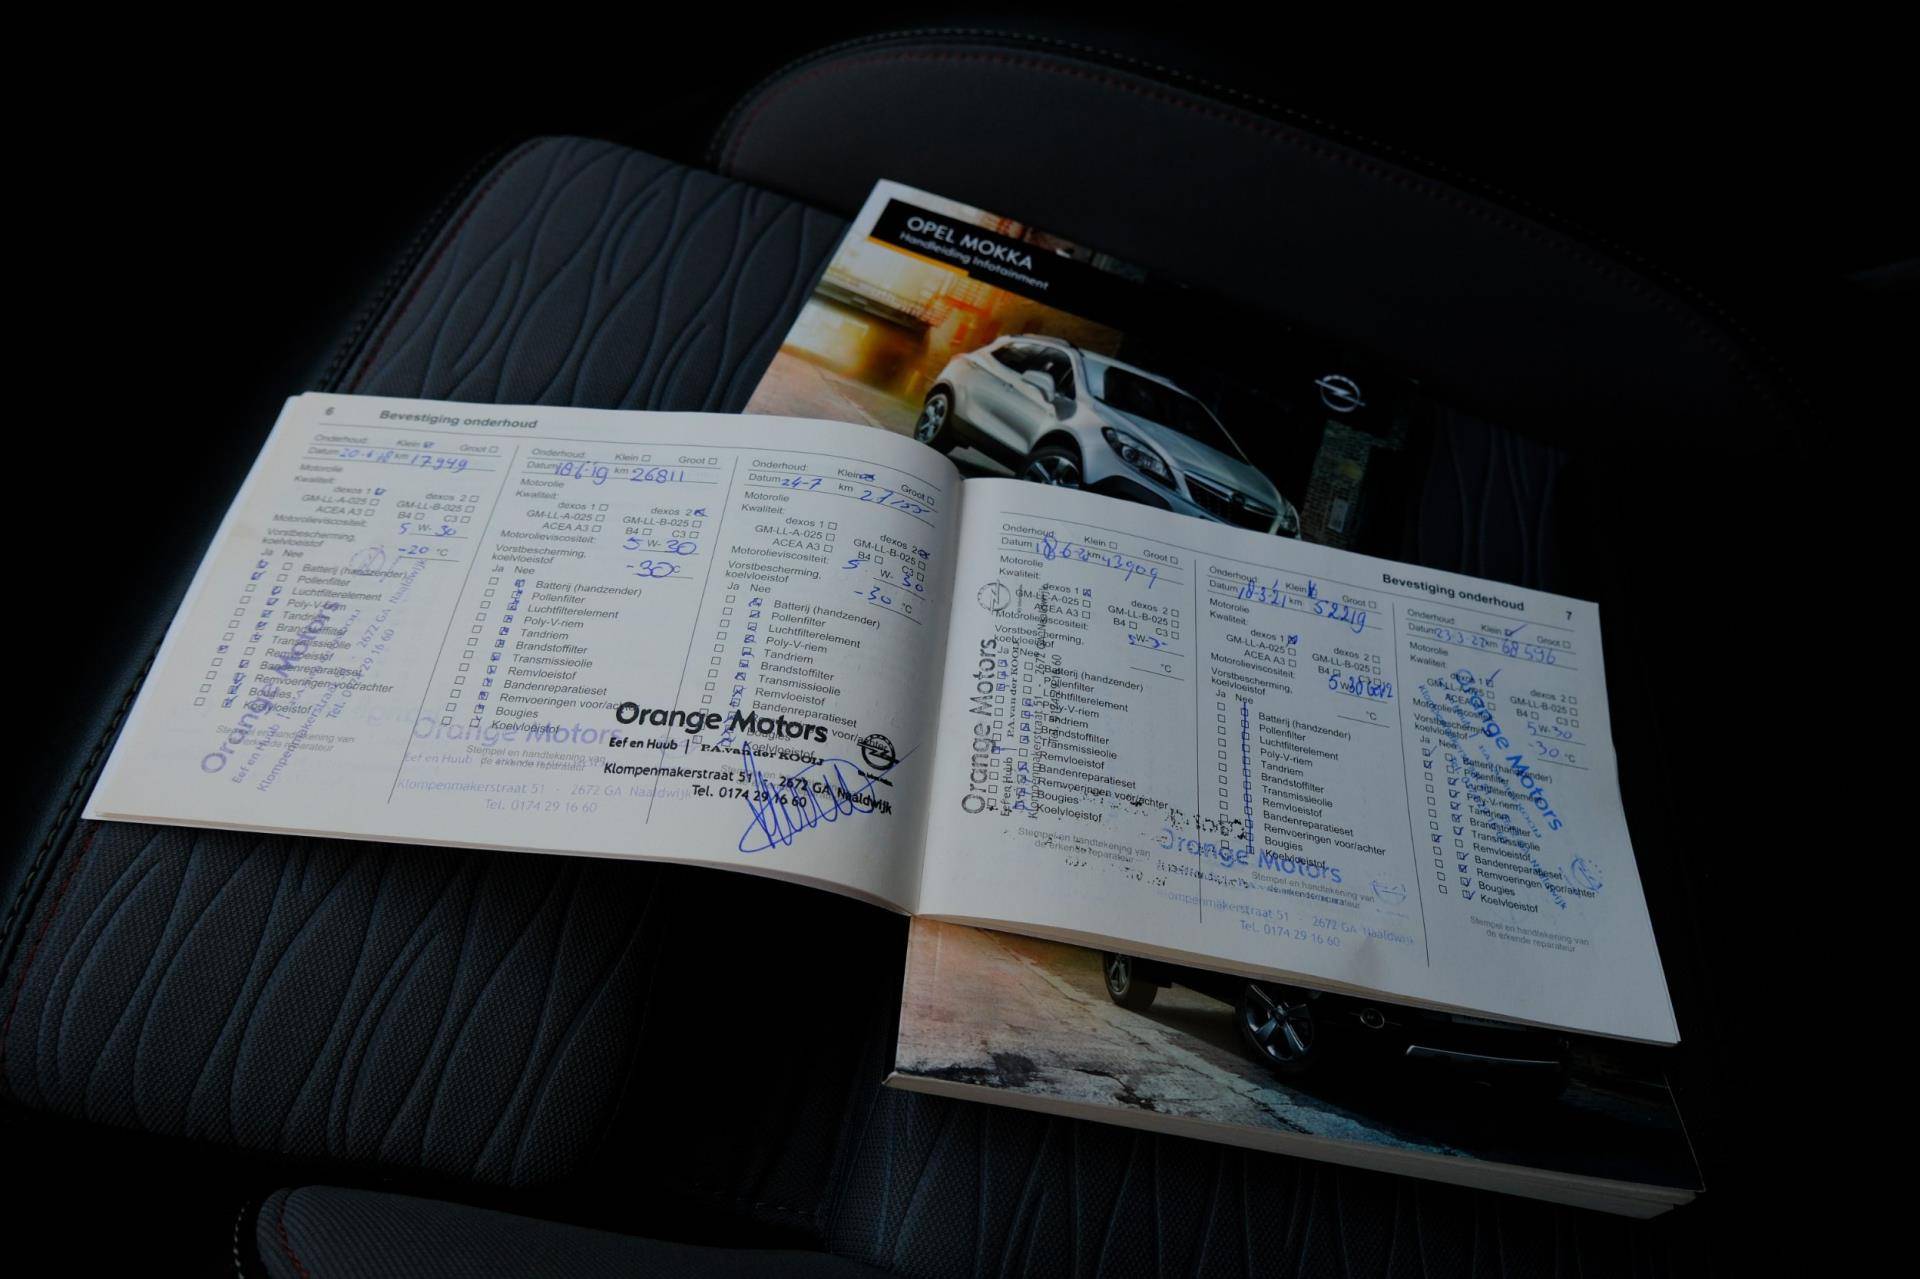 OPEL MOKKA
Handleiding Infotainment
6 Bevestiging onderhoud
Onderhoud: Klein Groot
Datum 20-6-18 km 17949
Motorolie
Kwaliteit:
dexos 1 dexos 2
GM-LL-A-025 GM-LL-B-025
ACEA A3 B4 C3
Motorolieviscositeit:
5 W- 30
Vorstbescherming,
koelvloeistof -20 °C
Ja Nee
Batterij (handzender)
Pollenfilter
Luchtfilterelement
Poly-V-riem
Tandriem
Brandstoffilter
Transmissieolie
Remvloeistof
Bandenreparatieset
Remvoeringen voor/achter
Bougies
Koelvloeistof
Stempel en handtekening van
de erkende reparateur
Orange Motors
Eef en Huub
Klompenmakerstraat 2672 GA Naaldwijk
Tel. 0174 29 16 60
Onderhoud: Klein Groot
Datum 18-6-19 km 26811
Motorolie
Kwaliteit:
dexos 1 dexos 2
GM-LL-A-025 GM-LL-B-025
ACEA A3 B4 C3
Motorolieviscositeit:
5 W- 30
Vorstbescherming,
koelvloeistof -30°C
Ja Nee
Batterij (handzender)
Pollenfilter
Luchtfilterelement
Poly-V-riem
Tandriem
Brandstoffilter
Transmissieolie
Remvloeistof
Bandenreparatieset
Remvoeringen voor/achter
Bougies
Koelvloeistof
Stempel en handtekening van
de erkende reparateur
Orange Motors
Eef en Huub
Klompenmakerstraat 51 · 2672 GA Naaldwijk
Tel. 0174 29 16 60
Onderhoud: Klein Groot
Datum 24-7 km
Motorolie
Kwaliteit:
dexos 1 dexos 2
GM-LL-A-025 GM-LL-B-025
ACEA A3 B4 C3
Motorolieviscositeit:
5 W- 30
Vorstbescherming,
koelvloeistof -30 °C
Ja Nee
Batterij (handzender)
Pollenfilter
Luchtfilterelement
Poly-V-riem
Tandriem
Brandstoffilter
Transmissieolie
Remvloeistof
Bandenreparatieset
Remvoeringen voor/achter
Bougies
Koelvloeistof
Orange Motors
Eef en Huub | P.A. van der KOOIJ
Klompenmakerstraat 51 · 2672 GA Naaldwijk
Tel. 0174 29 16 60
Bevestiging onderhoud 7
Onderhoud: Klein Groot
Datum 18-6-20 km 43909
Motorolie
Kwaliteit:
dexos 1 dexos 2
GM-LL-A-025 GM-LL-B-025
ACEA A3 B4 C3
Motorolieviscositeit:
5 W- 3-
Vorstbescherming,
koelvloeistof °C
Ja Nee
Batterij (handzender)
Pollenfilter
Luchtfilterelement
Poly-V-riem
Tandriem
Brandstoffilter
Transmissieolie
Remvloeistof
Bandenreparatieset
Remvoeringen voor/achter
Bougies
Koelvloeistof
Stempel en handtekening van
de erkende reparateur
Orange Motors
Eef en Huub | P.A. van der KOOIJ
Klompenmakerstraat 51 2672 GA Naaldwijk
Onderhoud: Klein Groot
Datum 18-3-21 km 52219
Motorolie
Kwaliteit:
dexos 1 dexos 2
GM-LL-A-025 GM-LL-B-025
ACEA A3 B4 C3
Motorolieviscositeit:
5 W 30
Vorstbescherming,
koelvloeistof °C
Ja Nee
Batterij (handzender)
Pollenfilter
Luchtfilterelement
Poly-V-riem
Tandriem
Brandstoffilter
Transmissieolie
Remvloeistof
Bandenreparatieset
Remvoeringen voor/achter
Bougies
Koelvloeistof
Stempel en handtekening van
de erkende reparateur
Orange Motors
Klompenmakerstraat 51 · 2672 GA Naaldwijk
Tel. 0174 29 16 60
Onderhoud: Klein Groot
Datum 23-3-22 km 68596
Motorolie
Kwaliteit:
dexos 1 dexos 2
GM-LL-A-025 GM-LL-B-025
ACEA A3 B4 C3
Motorolieviscositeit:
5 W- 30
Vorstbescherming,
koelvloeistof -30 °C
Ja Nee
Batterij (handzender)
Pollenfilter
Luchtfilterelement
Poly-V-riem
Tandriem
Brandstoffilter
Transmissieolie
Remvloeistof
Bandenreparatieset
Remvoeringen voor/achter
Bougies
Koelvloeistof
Stempel en handtekening van
de erkende reparateur
Orange Motors